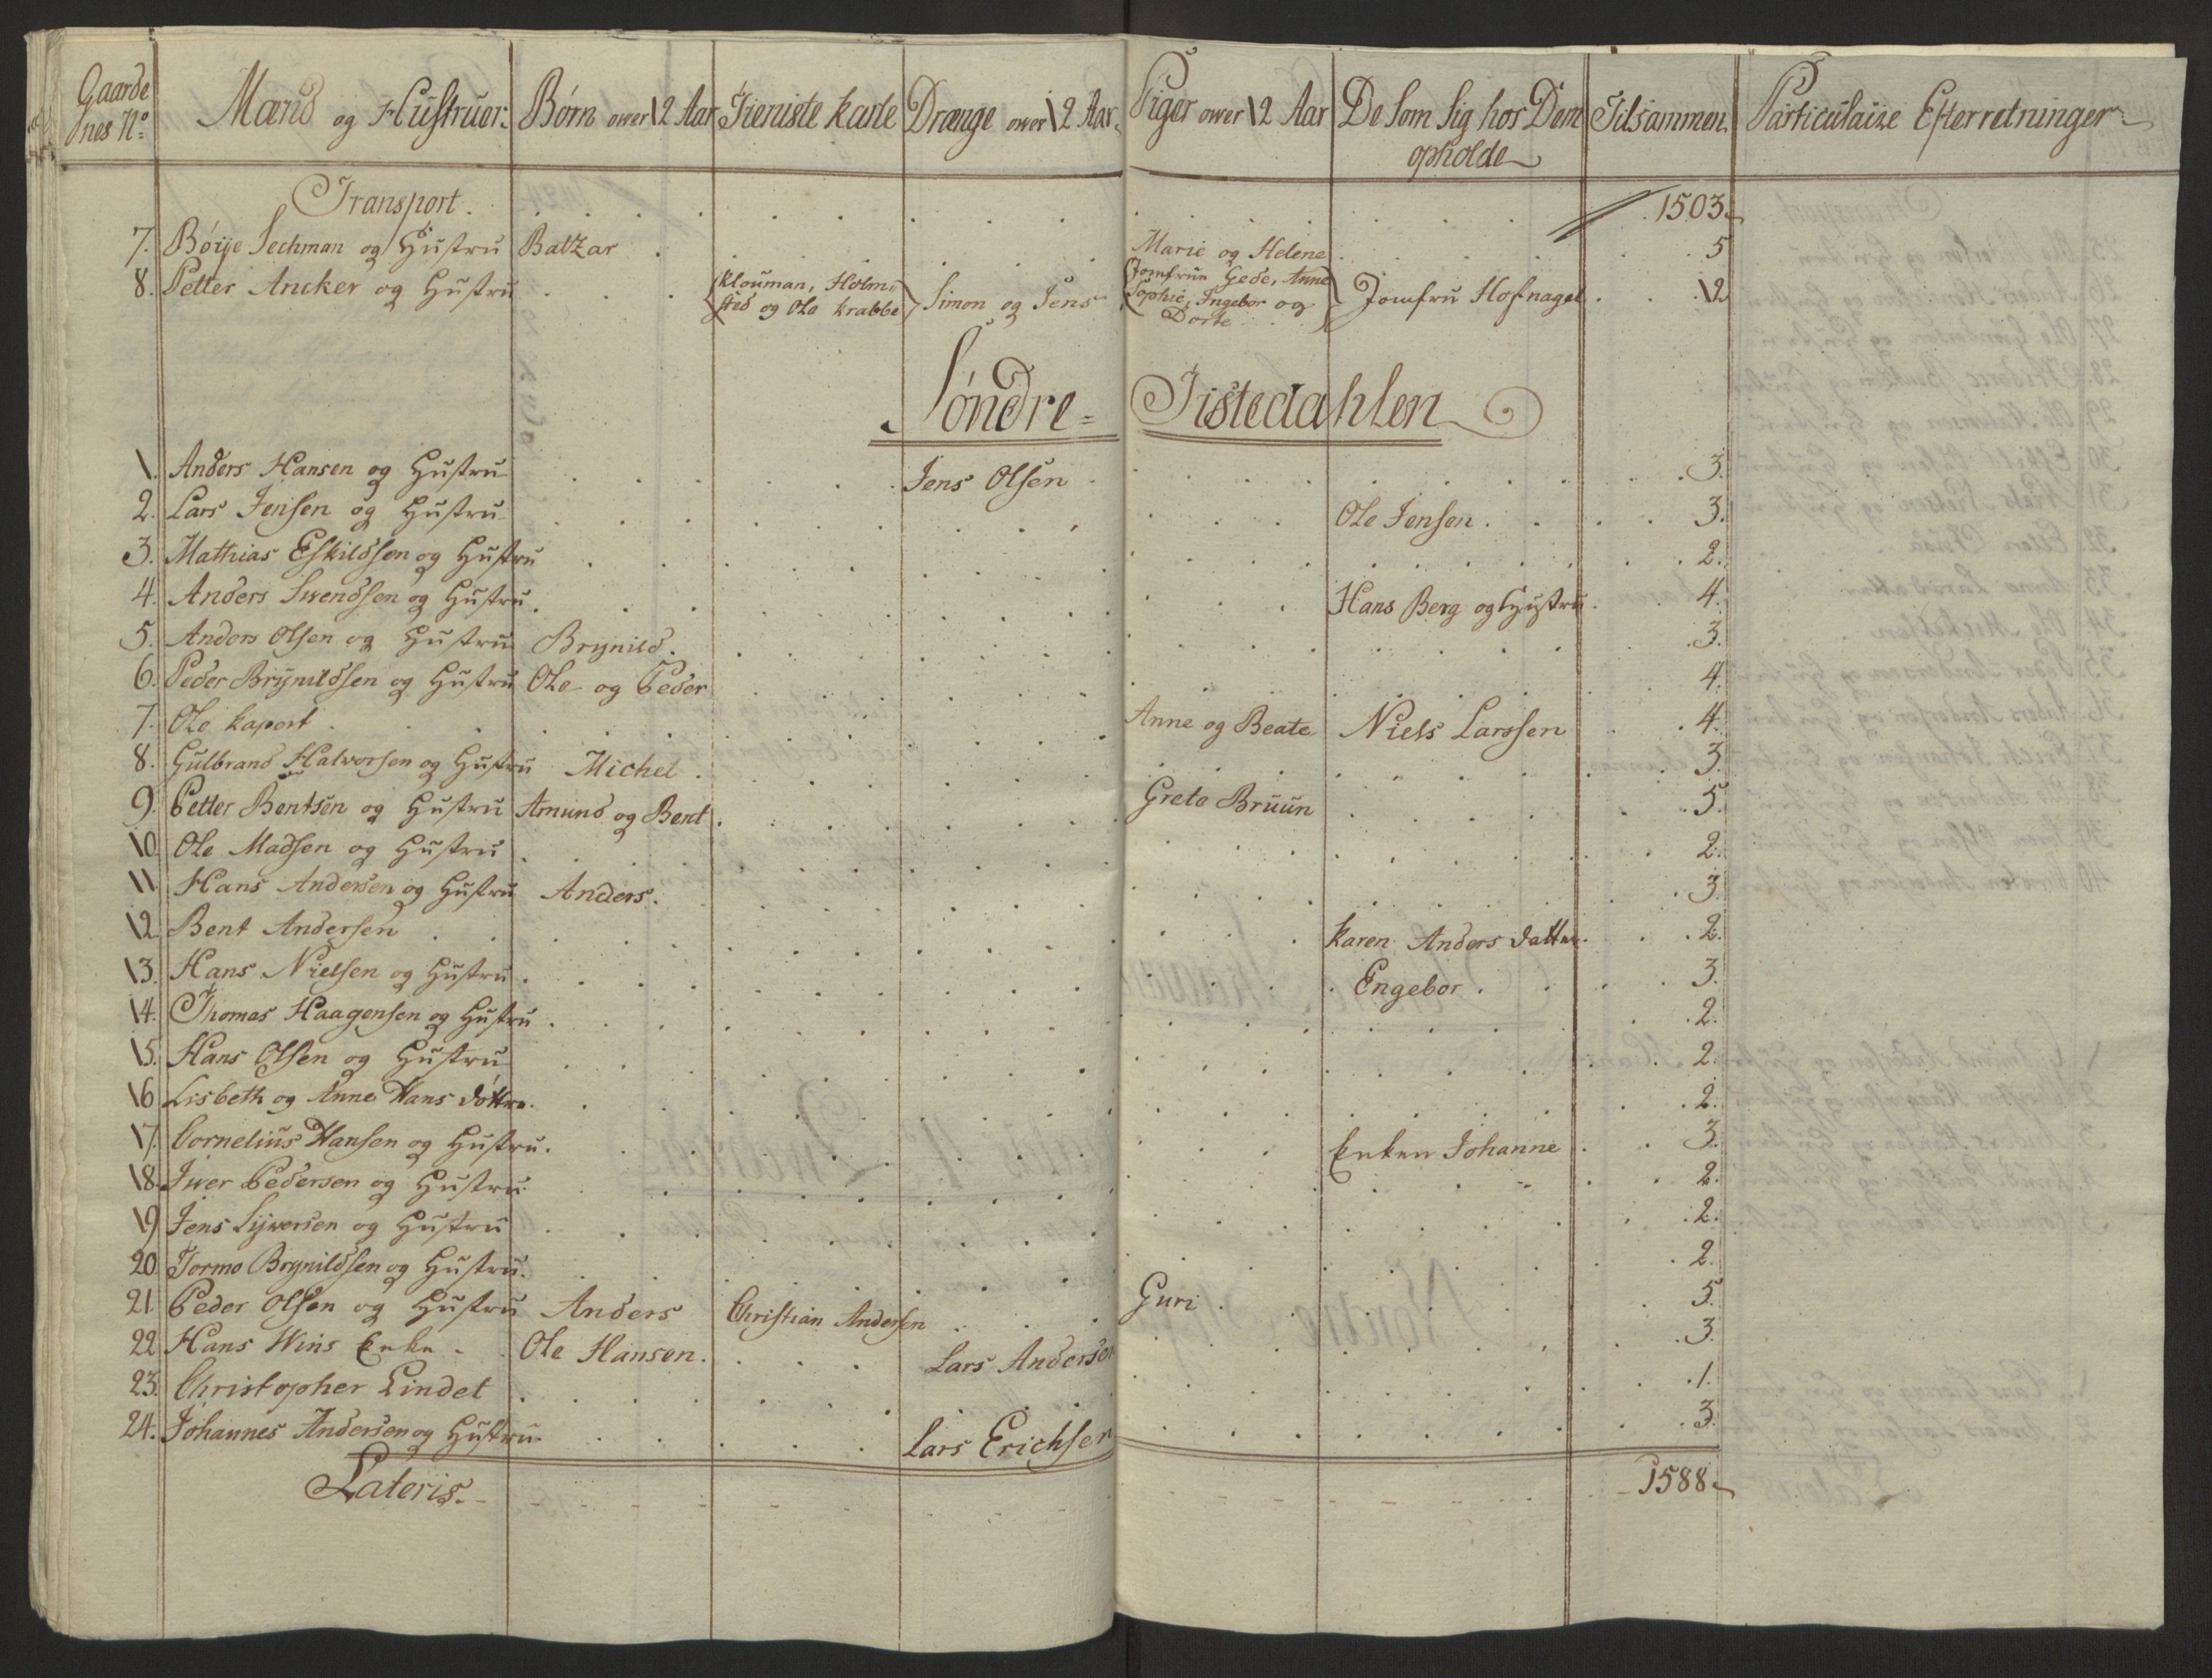 Gaardenes No. Mænd og Hustruer. Børn over 12 Aar Tieniste karle Drænge over 12 Aar. Piger over 12 Aar De som sig hos Dem opholde Tilsammen. Particulaire Efterretninger
Transport. 1503.
7. Böije Sechman og Hustru Batzar. Marie og Helene 5
8. Petter Ancker og Hustru Klouman, Holmsted og Ole Krabbe Simon og Jens Jomfrue Gede, Anne Sophie, Ingebor og Dorte Jomfru Hofnagel 12
Söndre= Tistedahlen
1. Anders Hansen og Hustru Jens Olsen 3.
2. Lars Jensen og Hustru Ole Jensen. 3.
3. Mathias Eskildsen og Hustru 2.
4. Anders Swendsen og Hustru Hans Berg og Hustru 4.
5. Anders Olsen og Hustru Brynild. 3.
6. Peder Brynildsen og Hustru Ole og Peder 4.
7. Ole kaport Anne og Beate Niels Larssen 4.
8. Gulbrand Halvorsen og Hustru Michel. 3.
9. Petter Bentsen og Hustru Amund og Bent Grete Bruun 5.
10. Ole Madsen og Hustru 2.
11. Hans Andersen og Hustru Anders. 3.
12. Bent Andersen karen Anders datter. 2.
13. Hans Nielsen og Hustru Engebor. 3.
14. Thomas Haagensen og Hustru 2.
15. Hans Olsen og Hustru 2.
16 Lisbeth og Anne Hans döttre. 2.
17. Cornelius Hansen og Hustru. Enken Johanne 3.
18. Iver Pedersen og Hustru 2.
19. Jens Syversen og Hustru 2.
20. Tormo Brynildsen og Hustru. 2.
21 Peder Olsen og Hustru Anders Christian Andersen Guri 5.
22 Hans Wins Enke Ole Hansen. Lars Andersen 3.
23. Christopher Lindet 1.
24. Johannes Andersen og Hustru Lars Erichsen 3.
Lateris. 1588.